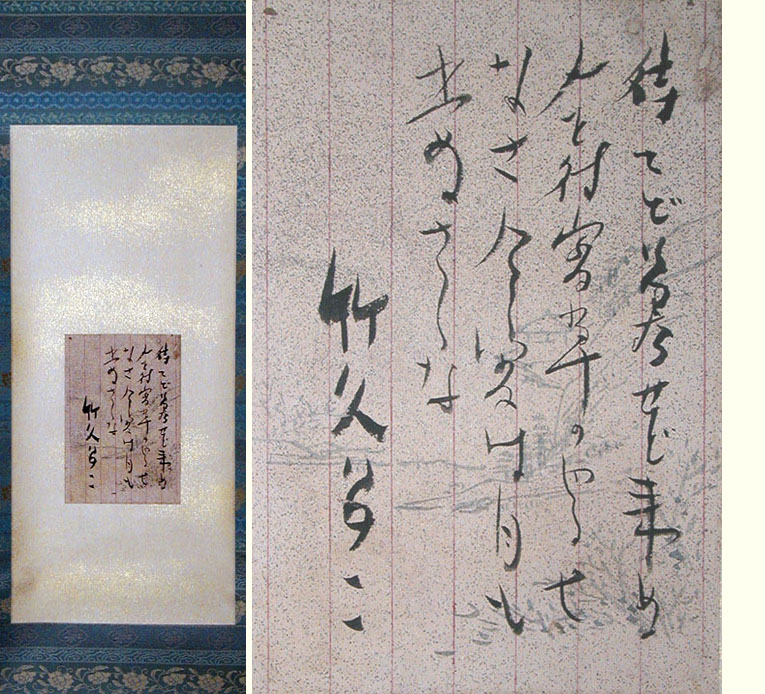 待てど暮らせど来ぬ
人を待宵草のやるせ
なさ今宵は月も
出ぬさうな
竹久夢二